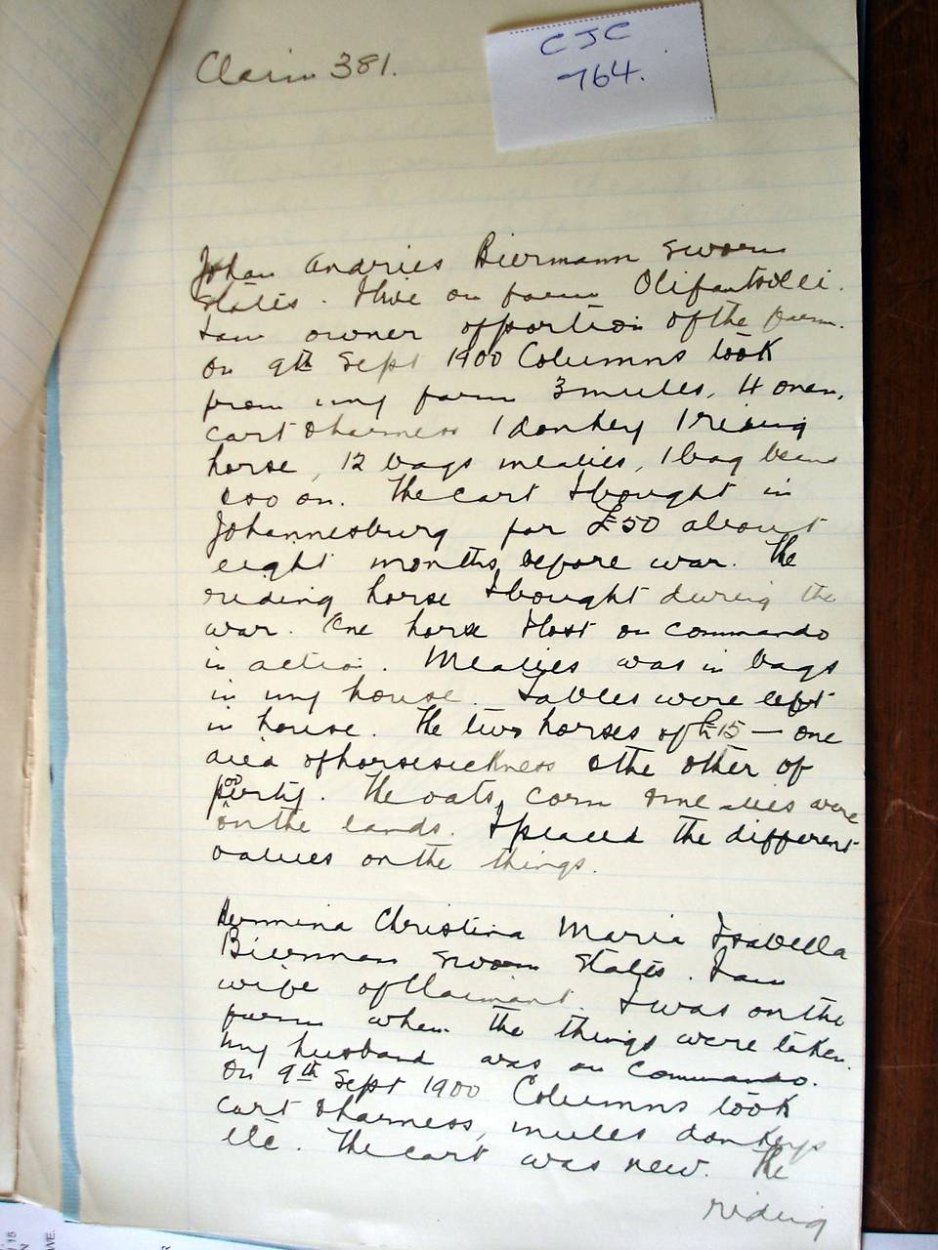 CJC
764.
Claim 381.
Johan Andries Biermann sworn
States. I live on farm Olifantsvlei.
I am owner of portion of the farm.
On 9th Sept 1900 Columns took
from my farm 3 mules, 4 oxen,
cart & harness 1 donkey 1 riding
horse, 12 bags mealies, 1 bag beans
& so on. The cart I bought in
Johannesburg for £50 about
eight months before war. The
riding horse I bought during the
war. One horse I lost on commando
in action. Mealies was in bags
in my house. Tables were left
in house. The two horses of £15 — one
died of horsesickness & the other of
poverty. The oats, corn & mealies were
on the lands. I placed the different
values on the things.
Hermina Christina Maria Isabella
Bierman sworn States. I am
wife of Claimant. I was on the
farm when the things were taken.
My husband was on Commando.
On 9th Sept 1900 Columns took
cart & harness, mules donkeys
etc. The cart was new. The
riding